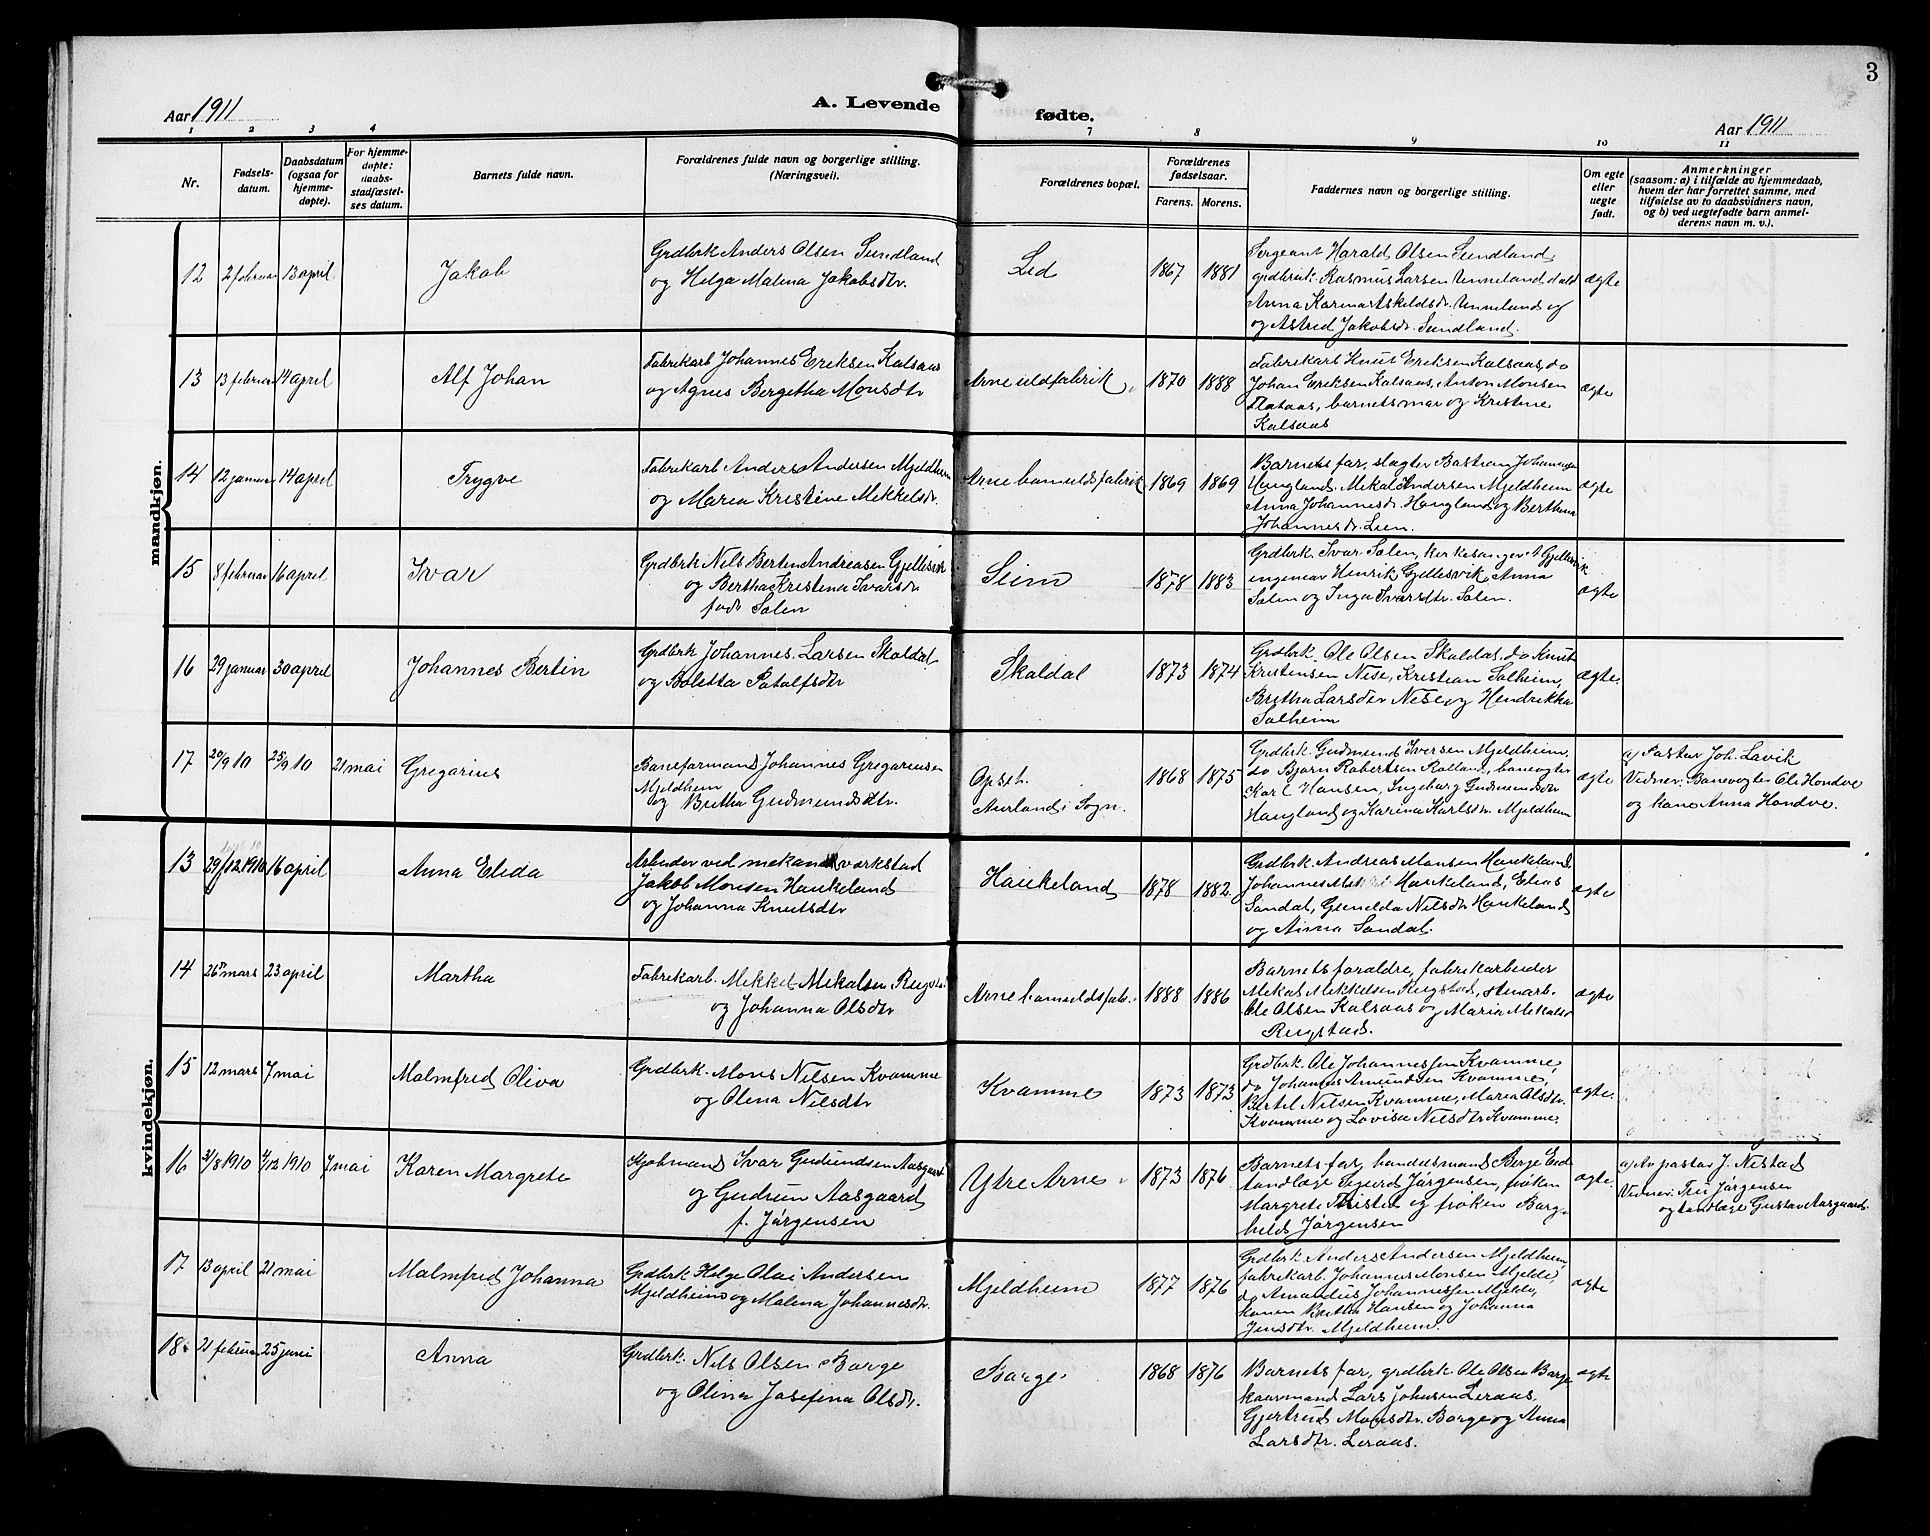 3
Aar 1911
A. Levende
fødte.
Aar 1911
1 2 3 4 7 8 9 10 11
Nr.
Fødsels-
datum.
Daabsdatum
(ogsaa for
hjemme-
døpte).
For hjemme-
døpte:
daabs-
stadfæstel-
ses datum.
Barnets fulde navn.
Forældrenes fulde navn og borgerlige stilling.
(Næringsvei).
Forældrenes bopæl.
Forældrenes
fødselsaar.
Farens. Morens.
Faddernes navn og borgerlige stilling.
Om egte
eller
uegte
født.
Anmerkninger
(saasom: a) i tilfælde av hjemmedaab,
hvem der har forrettet samme, med
tilføielse av to daabsvidners navn,
og b) ved uegtefødte barn anmel-
derens navn m. v.).
mandkjøn.
12 2 februar 13 april Jakob
Grdbrk Anders Olsen Sundland
og Helga Malena Jakobsdtr.
Lid 1867 1881
Sergeant Harald Olsen Sundland,
grdbruk Rasmus Larsen Unneland,
Anna Karina Askeldsdr. Unneland og
og Astrid Jakobsdr. Sundland.
ægte
13 13 februar 14 april Alf Johan
Fabrikarb Johannes Eriksen Kalsaas
og Agnes Bergetha Monsdtr
Arne uldfabrik 1870 1888
Fabrikarb Knut Eriksen Kalsaas, do
Johan Eriksen Kalsaas, Anton Monsen
Flataas, barnets mor og Kristine
Kalsaas
ægte
14 12 januar 14 april Trygve
Fabrikarb Anders Andersen Mjeldheim
og Maria Kristine Mikkelsdr.
Arne bomuldsfabrik 1869 1869
Barnets far, slagter Bastian Johannesen
Haugland, Mikal Andersen Mjeldheim
Anna Johannesdr. Haugland og Berthina
Johannesdr. Lien.
ægte
15 8 februar 16 april Ivar
Grdbrk Nils Bertin Andreasen Gjellesvik
og Bertha Kristina Ivarsdr
født Salen
Seim 1878 1883
Grdbrk. Ivar Salen, kirkesanger A Gjellesvik
ingeniør Henrik Gjellesvik, Anna
Salen og Inga Ivarsdtr. Salen.
ægte
16 29 januar 30 april Johannes Bertin
Grdbrk Johannes Larsen Skaldal
og Boletta Ratalfsdtr
Skaldal 1873 1874
Grdbrk. Ole Olsen Skaldal, do Knut
Kristensen Nese, Kristian Solheim,
Brytha Larsdtr Nese og Hendrikka
Solheim
ægte.
17 20/9 10 25/9 10 21 mai Gregarius
Baneformand Johannes Gregariusen
Mjeldheim
og Britha Gudmundsdtr.
Opset
Aurland i Sogn. 1868 1875
Grdbrk. Gudmund Iversen Mjeldheim,
do Bjørn Robertsen Rolland, banevogter
Karl Hansen, Ingeborg Gudmundsdtr
Haugland og Karina Karlsdtr. Mjeldheim
ægte
a) Pastor Joh. Lavik
Vidner: Banevogter Ole Hondve
og kone Anna Hondve.
kvindekjøn.
13 29/12 1910 16 april Anna Elida
Arbeider ved mekan værkstad
Jakob Monsen Haukeland
og Johanna Knutsdtr
Haukeland 1878 1882
Grdbrk. Andreas Monsen Haukeland,
Johannes Haukeland, Elias
Sandal, Gunilda Nilsdtr Haukeland
og Anna Sandal.
ægte
14 26 mars 23 april Martha
Fabrikarb. Mikkel Mikalsen
og Johanna Olsdtr
Arne bomuldsfab. 1888 1886
Barnets foraldre, fabrikarbeider
Mikal Mikkelsen Rugstad, stenarb.
Ole Olsen Kalsaas og Maria Mikalsd
Rugstad.
ægte
15 12 mars 7 mai Malmfred Oliva
Grdbrk. Mons Nilsen Kvamme
og Olena Nilsdtr
Kvamme 1873 1873
Grdbrk. Ole Johannessen Kvamme,
do Johannes Amundsen Kvamme,
Bertil Nilsen Kvamme, Maria Olsdtr.
Kvamme og Lovisa Nilsdtr Kvamme.
ægte.
16 31/8 1910 4/12 1910 7 mai Karen Margrete
Kjøbmand Ivar Gudundsen Aasgaard
og Gudrun Aasgaard
f. Jørgensen
Ytre Arne 1873 1876
Barnets far, handelsmand Børge Eid
tandlæge Sigurd Jørgensen, frøken
Margrete og frøken Borg-
hild Jørgensen
ægte.
a) Av pastor J. Nistad
Vidner: Jørgensen
og tandlæge Gustav Aasgaard.
17 13 april 21 mai Malmfred Johanna
Grdbrk Helge Olai Andersen
Mjeldheim og Malena Johannesdtr.
Mjeldheim 1877 1876
Grdbrk. Anders Andersen Mjeldheim,
fabrikarb. Johannes Monsen Mjelde,
do Amandus Johannessen Mjelde,
konen Britha Hansen og Johanna
Jensdtr. Mjeldheim.
ægte
18 21 februar 25 juni Anna
Grdbrk. Nils Olsen Borge
og Olina Josefina Olsdtr.
Borge 1868 1876
Barnets far, grdbrk Ole Olsen Borge
kaarmand Lars Johnsen Leraas,
Gjertrud Monsdtr. Borge og Anna
Larsdtr. Leraas.
ægte